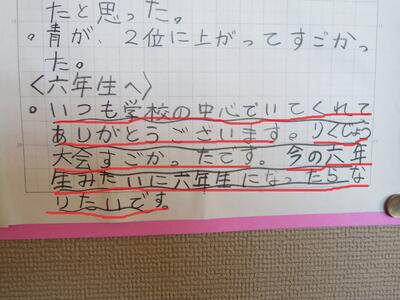 たと思った。
。青が、2位に上がってすごかっ
た。
〈六年生へ〉
。いつも学校の中心でいてくれて
ありがとうございます。りくじょう
大会すごかったです。今の六年
生みたいに六年生になったらな
りたいです。